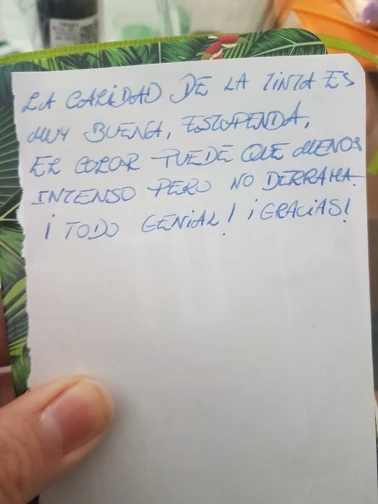 LA CALIDAD DE LA TINTA ES
MUY BUENA, ESTUPENDA,
EL COLOR PUEDE QUE MENOS
INTENSO PERO NO DERRAMA.
¡TODO GENIAL! ¡GRACIAS!